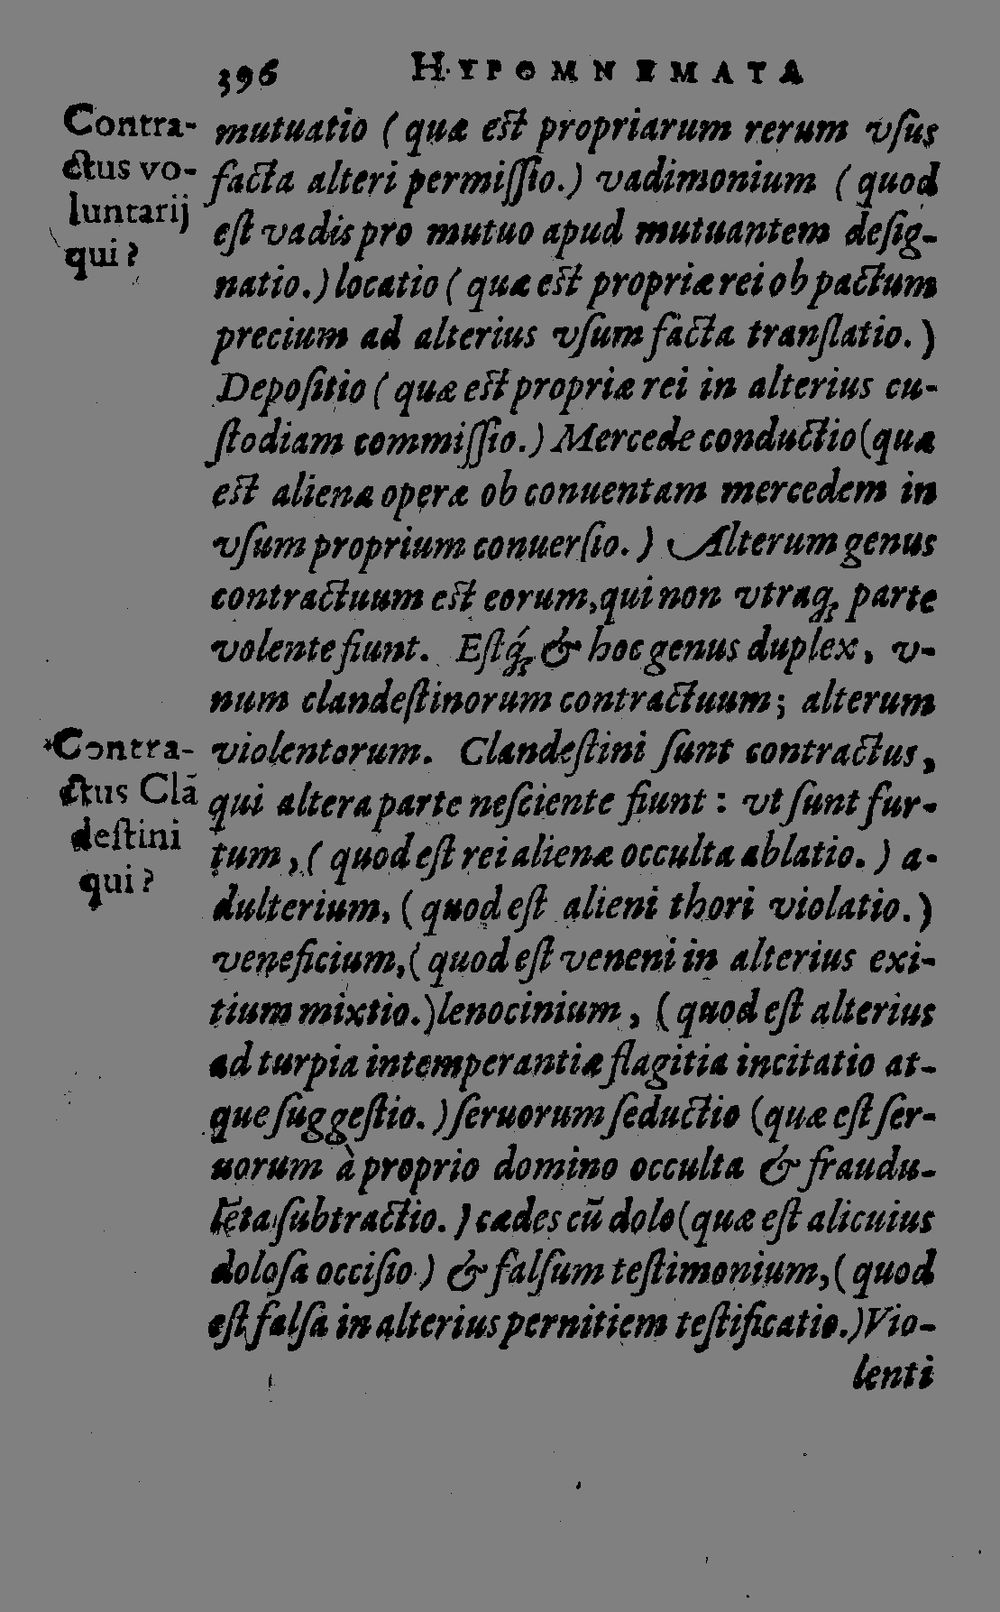 396 HYPOMNEMATA
Contra-
ctus vo-
luntarij
qui?
mutuatio ( quæ est propriarum rerum vſus
facta alteri permiſſio.) vadimonium ( quod
eſt vadis pro mutuo apud mutuantem deſig-
natio.) locatio ( quæ est propriæ rei ob pactum
precium ad alterius vſum facta tranſlatio. )
Depoſitio ( quæ est propriæ rei in alterius cu-
ſtodiam commiſſio.) Mercede conductio (quæ
est alienæ operæ ob conuentam mercedem in
vſum proprium conuerſio. ) Alterum genus
contractuum est eorum, qui non vtraq; parte
volente fiunt. Eſtq́; & hoc genus duplex, v-
num clandeſtinorum contractuum; alterum
Contra-
ctus Clã
deſtini
qui?
violentorum. Clandeſtini ſunt contractus,
qui altera parte neſciente fiunt : vt ſunt fur-
tum, ( quod eſt rei alienæ occulta ablatio. ) a-
dulterium, ( quod eſt alieni thori violatio. )
veneficium, ( quod eſt veneni in alterius exi-
tium mixtio.) lenocinium, ( quod eſt alterius
ad turpia intemperantiæ flagitia incitatio at-
que ſuggeſtio. ) ſeruorum ſeductio (quæ eſt ſer-
uorum à proprio domino occulta & fraudu-
lẽta ſubtractio. ) cædes cũ dolo (quæ eſt alicuius
doloſa occiſio ) & falſum teſtimonium, ( quod
eſt falſa in alterius pernitiem teſtificatio.) Vio-
lenti